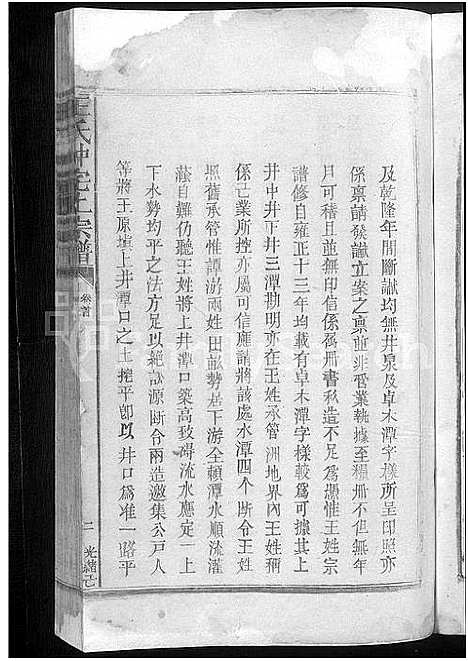 及乾隆年間斷讞均無井泉及卓木潭字樣所呈印照亦
係稟請發讞立案之稟並非管業執據至糧冊不但無年
月可稽且並無印信係屬冊書私造不足為憑惟王姓宗
譜修自雍正十三年均載有卓木潭字樣較為可據其上
井中井下井三潭勘明亦在王姓承管洲地界內王姓稱
係己業所控亦屬可信應請將該處水潭四个斷令王姓
照舊承管惟譚游兩姓田畝勢居下游全賴潭水順流灌
蔭自難仍聽王姓將上井潭口築高致碍流水應定一上
下水勢均平之法方足以絕訟源斷令兩造邀集公戶人
等將王原填上井潭口之土挖平即以井口為准一路平
王氏沖宅上宗譜
卷首
二
光緒己